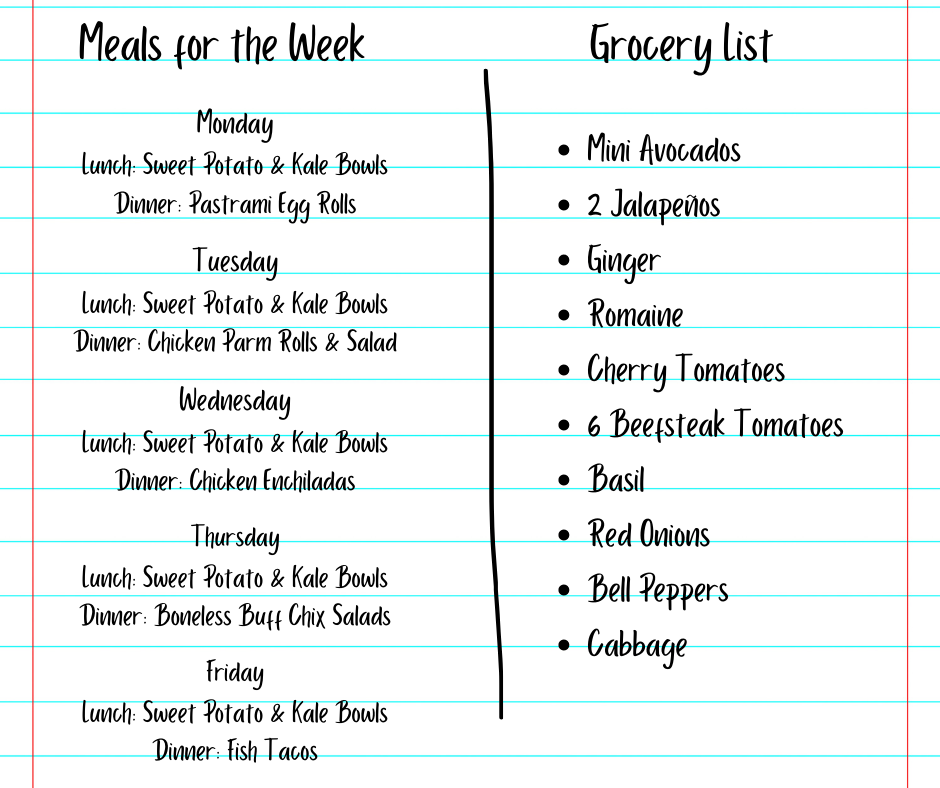 Meals for the Week
Monday
Lunch: Sweet Potato & Kale Bowls
Dinner: Pastrami Egg Rolls
Tuesday
Lunch: Sweet Potato & Kale Bowls
Dinner: Chicken Parm Rolls & Salad
Wednesday
Lunch: Sweet Potato & Kale Bowls
Dinner: Chicken Enchiladas
Thursday
Lunch: Sweet Potato & Kale Bowls
Dinner: Boneless Buff Chix Salads
Friday
Lunch: Sweet Potato & Kale Bowls
Dinner: Fish Tacos
Grocery List
• Mini Avocados
• 2 Jalapeños
• Ginger
• Romaine
• Cherry Tomatoes
• 6 Beefsteak Tomatoes
• Basil
• Red Onions
• Bell Peppers
• Cabbage